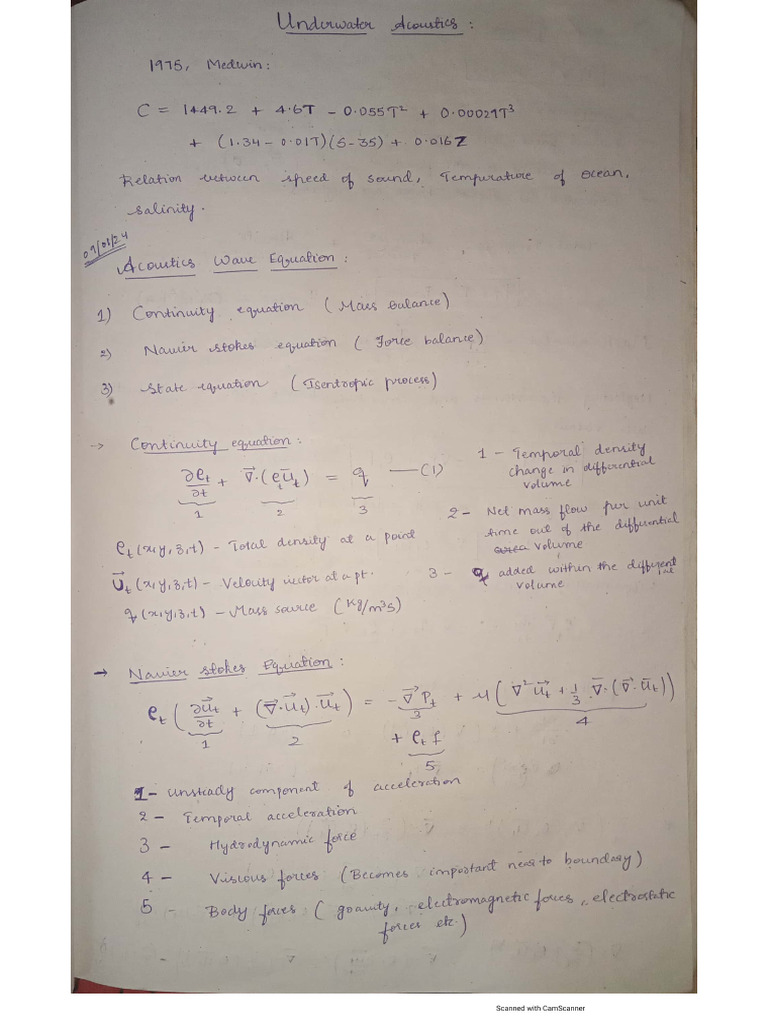 Underwater Acoustics :
1975, Medwin:
C = 1449.2 + 4.6T - 0.055T² + 0.00029T³
+ (1.34 - 0.01T)(S-35) + 0.016Z
Relation between speed of sound, Temperature of ocean,
salinity.
Acoustics Wave Equation :
1) Continuity equation ( Mass balance)
2) Navier stokes equation ( Force balance)
3) State equation (Isentropic process)
→ Continuity equation :
∂ρₜ/∂t + ∇⃗·(ρₜu⃗ₜ) = q —(1)
1 2 3
1 - Temporal density
change in differential
volume
2 - Net mass flow per unit
time out of the differential
area volume
3 - q added within the different
ial volume
ρₜ (x,y,z,t) - Total density at a point
U⃗ₜ (x,y,z,t) - Velocity vector at a pt.
q (x,y,z,t) - Mass source (Kg/m³s)
→ Navier stokes Equation :
ρₜ ( ∂u⃗ₜ/∂t + (∇⃗·u⃗ₜ)·u⃗ₜ ) = -∇⃗Pₜ + μ ( ∇²u⃗ₜ + 1/3 ∇⃗·(∇⃗·u⃗ₜ))
1 2 3 4
+ ρₜ f
5
1 - Unsteady component of acceleration
2 - Temporal acceleration
3 - Hydrodynamic force
4 - Viscous forces (Becomes important near to boundary)
5 - Body forces ( gravity, electromagnetic forces, electrostatic
forces etc.)
Scanned with CamScanner